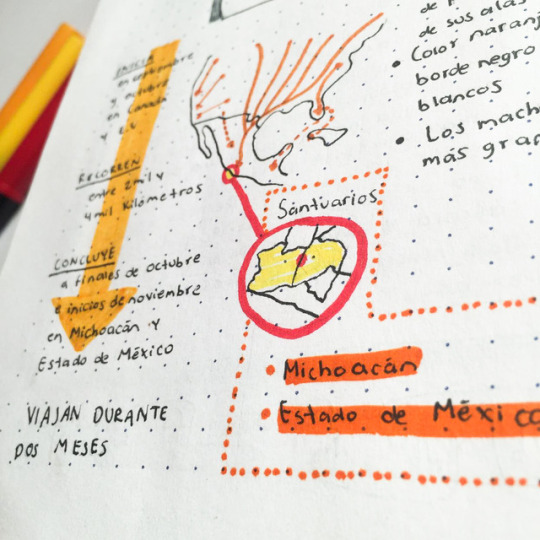 INICIA
en septiembre
y octubre
en Canadá
y
RECORREN
entre 2 mil y
4 mil Kilómetros
CONCLUYE
a finales de octubre
e inicios de noviembre
en Michoacán y
Estado de México
VIAJÁN DURANTE
DOS MESES
de sus alas
• Color naranj
borde negro
blancos
• Los mach
más gran
Santuarios
• Michoacán
• Estado de México